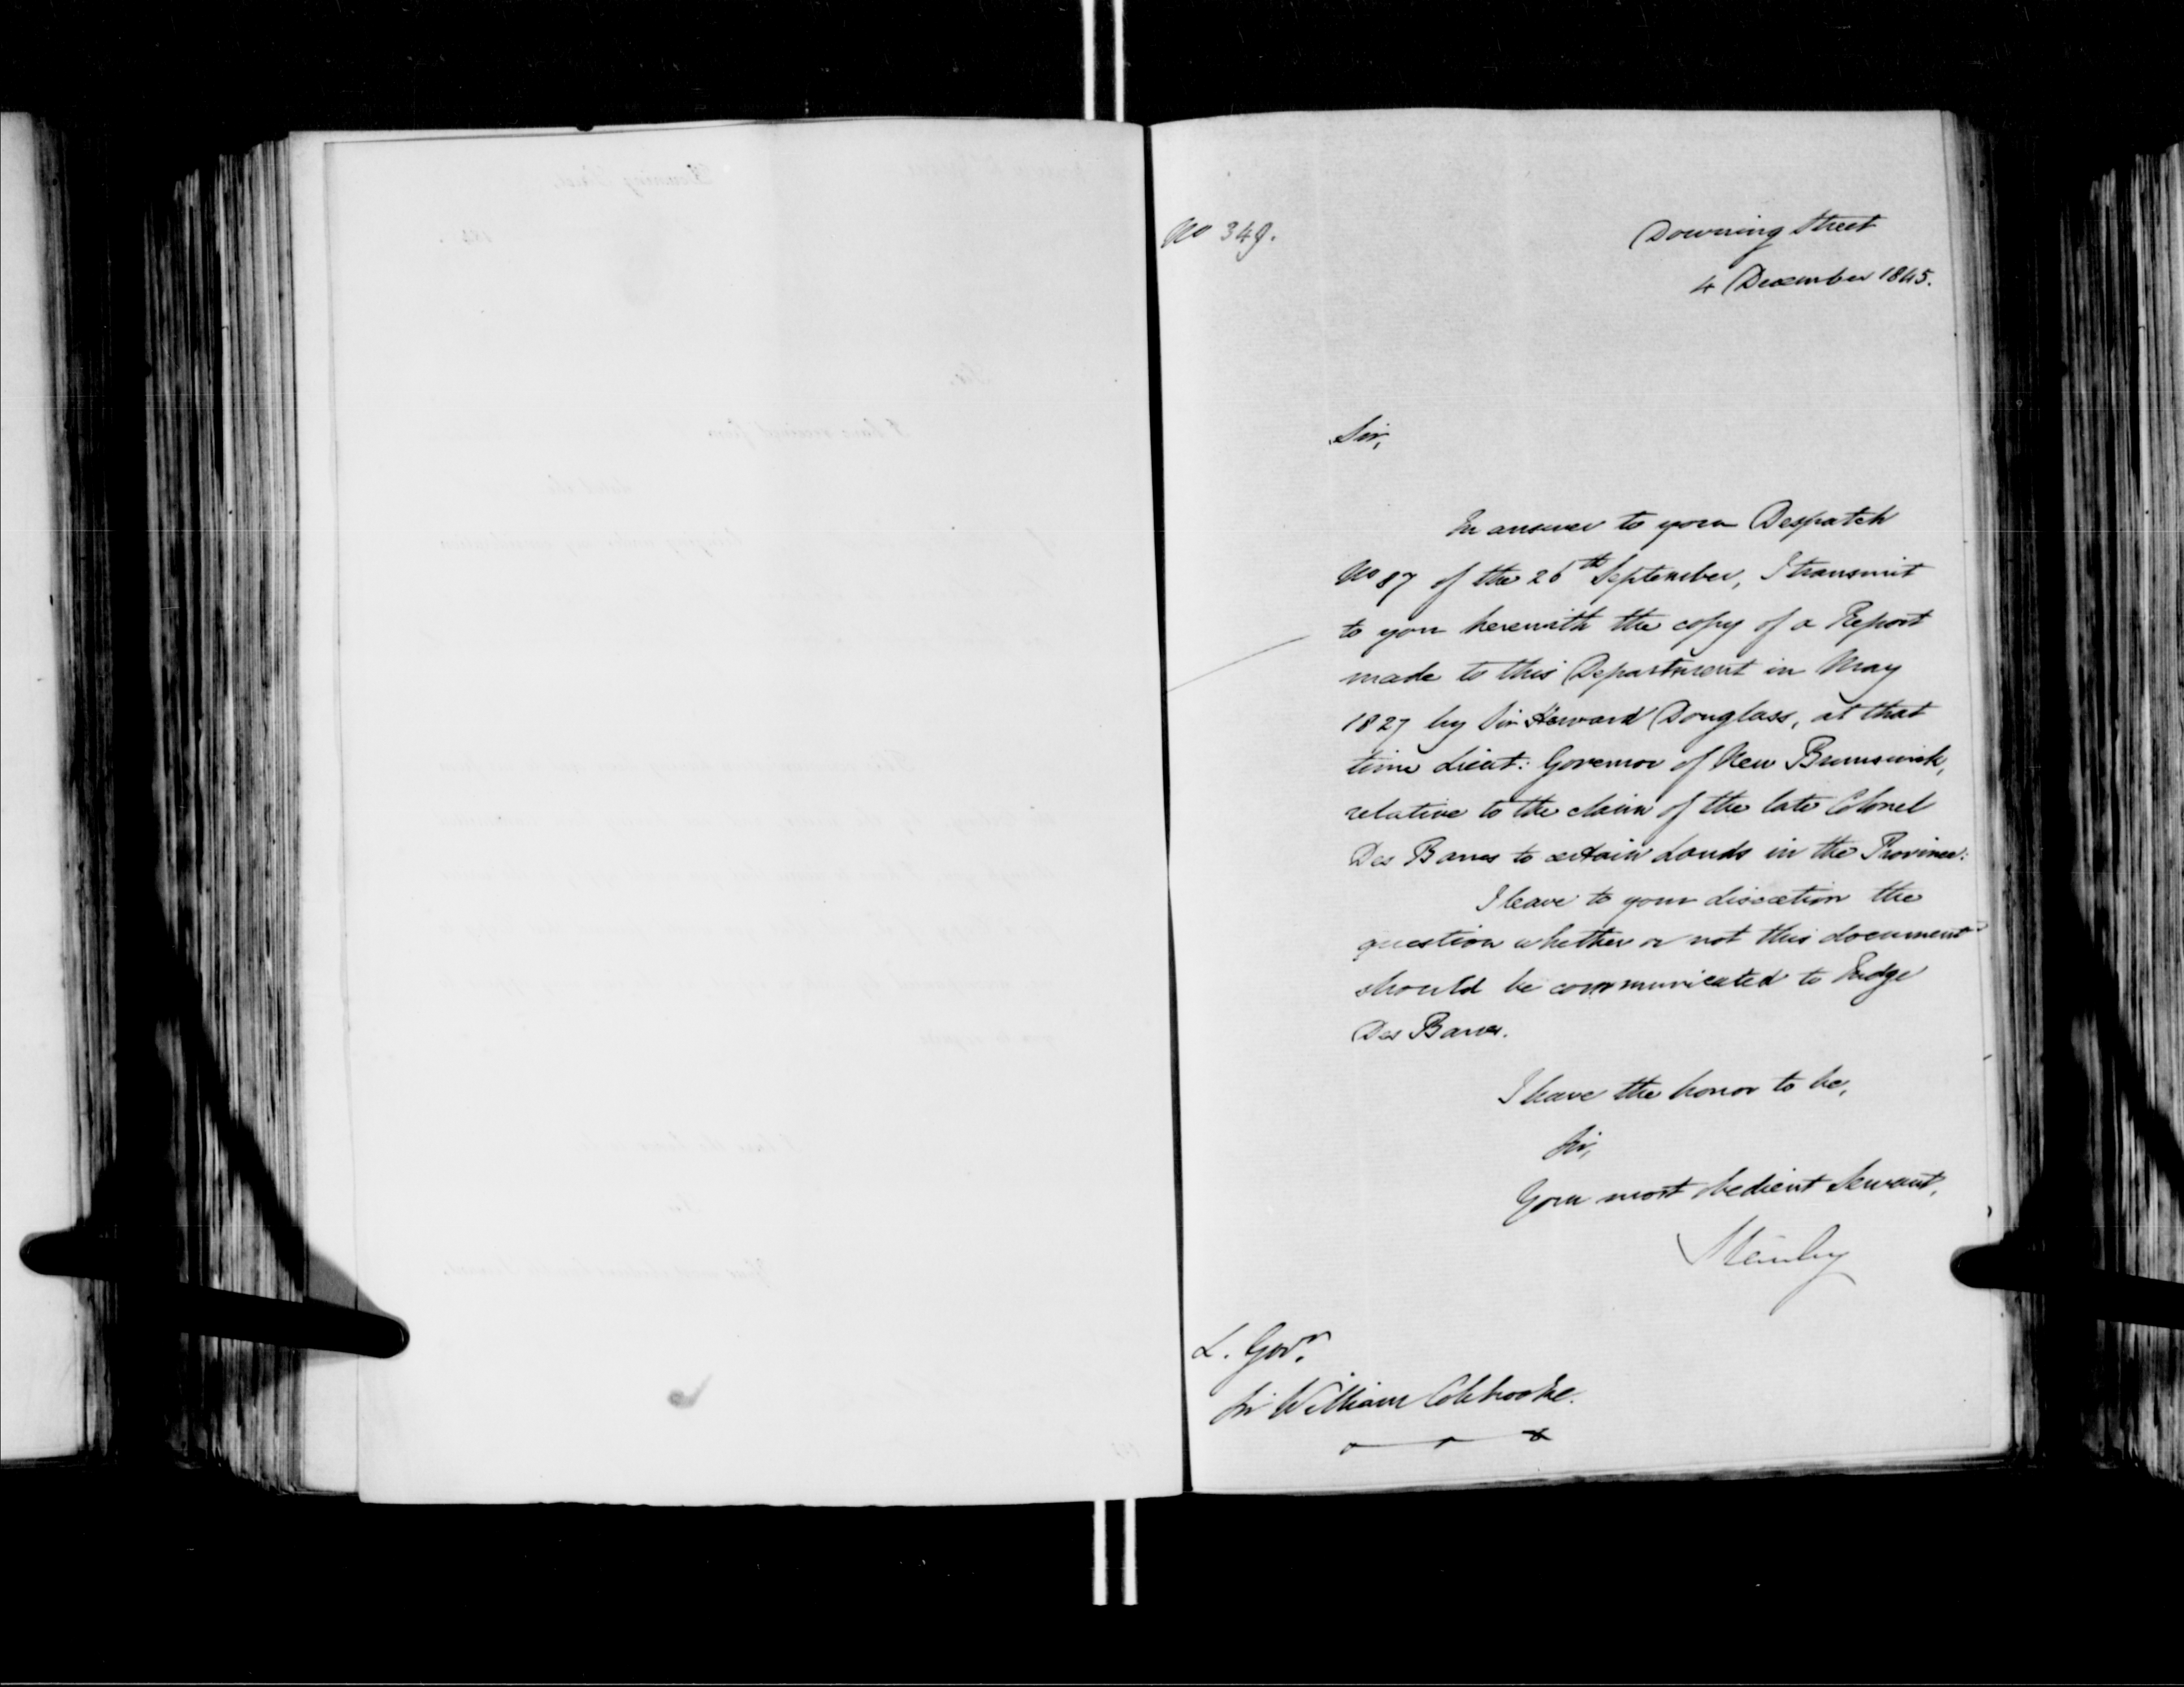 No 349.
Downing Street
4 December 1845.
Sir,
In answer to your Despatch
No 87 of the 26th September, I transmit
to you herewith the copy of a Report
made to this Department in May
1827 by Sir Howard Douglass, at that
time Lieut: Governor of New Brunswick,
relative to the claim of the late Colonel
Des Barres to certain Lands in the Province:
I leave to your discretion the
question whether or not this document
should be communicated to Judge
Des Barres.
I have the honor to be,
Sir,
Your most obedient Servant,
Stanley
L. Govr.
Sir William Colebrooke.